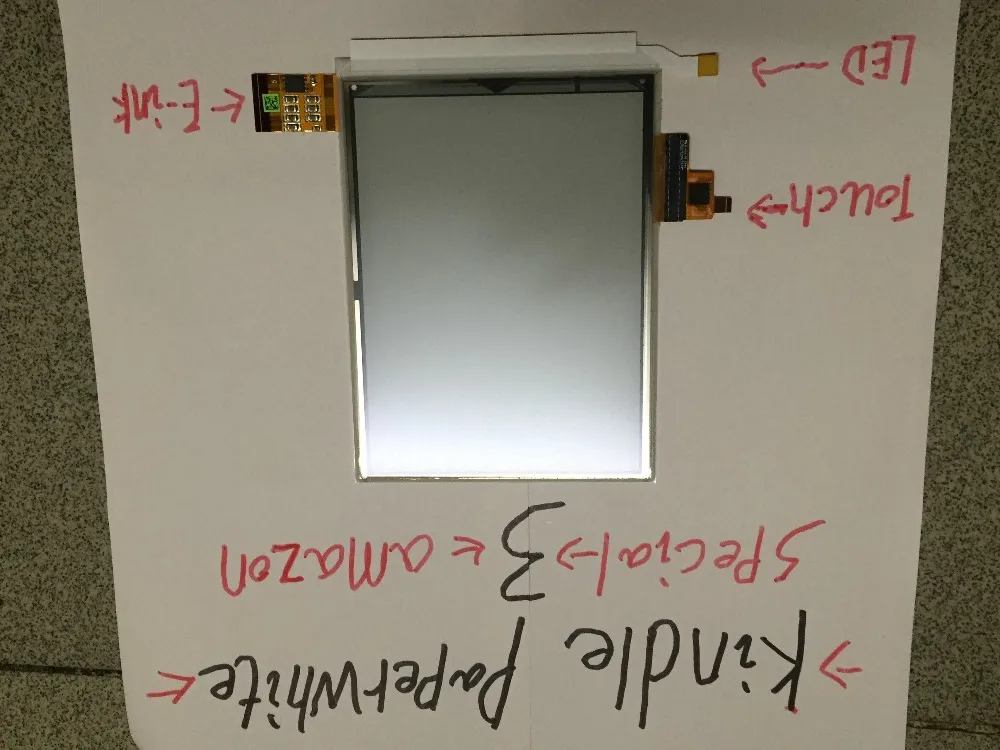 → Kindle PaPerwhite ←
SPecial → 3 ← amazon
Touch →
← E-ink
LED →